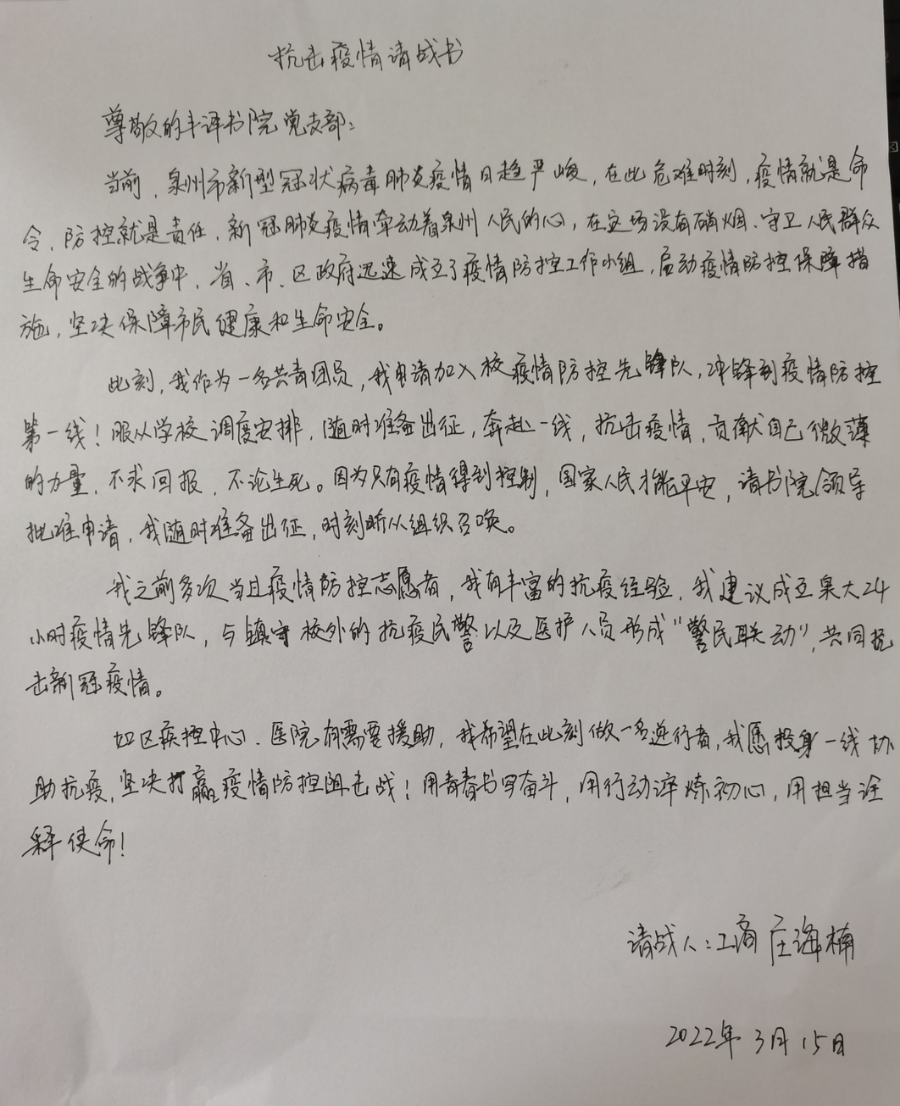 抗击疫情请战书
尊敬的丰泽书院党支部：
当前，泉州市新型冠状病毒肺炎疫情日趋严峻，在此危难时刻，疫情就是命
令，防控就是责任，新冠肺炎疫情牵动着泉州人民的心，在这场没有硝烟、守卫人民群众
生命安全的战争中，省、市、区政府迅速成立了疫情防控工作小组，启动疫情防控保障措
施，坚决保障市民健康和生命安全。
此刻，我作为一名共青团员，我申请加入校疫情防控先锋队，冲锋到疫情防控
第一线！服从学校调度安排，随时准备出征，奔赴一线，抗击疫情，贡献自己微薄
的力量，不求回报，不论生死。因为只有疫情得到控制，国家人民才能平安，请书院领导
批准申请，我随时准备出征，时刻听从组织召唤。
我之前多次当过疫情防控志愿者，我有丰富的抗疫经验，我建议成立泉大24
小时疫情先锋队，与镇守校外的抗疫民警以及医护人员形成“警民联动”，共同抗
击新冠疫情。
如区疾控中心、医院有需要援助，我希望在此刻做一名逆行者，我愿投身一线协
助抗疫，坚决打赢疫情防控阻击战！用青春书写奋斗，用行动淬炼初心，用担当诠
释使命！
请战人：工商 庄海楠
2022年3月15日